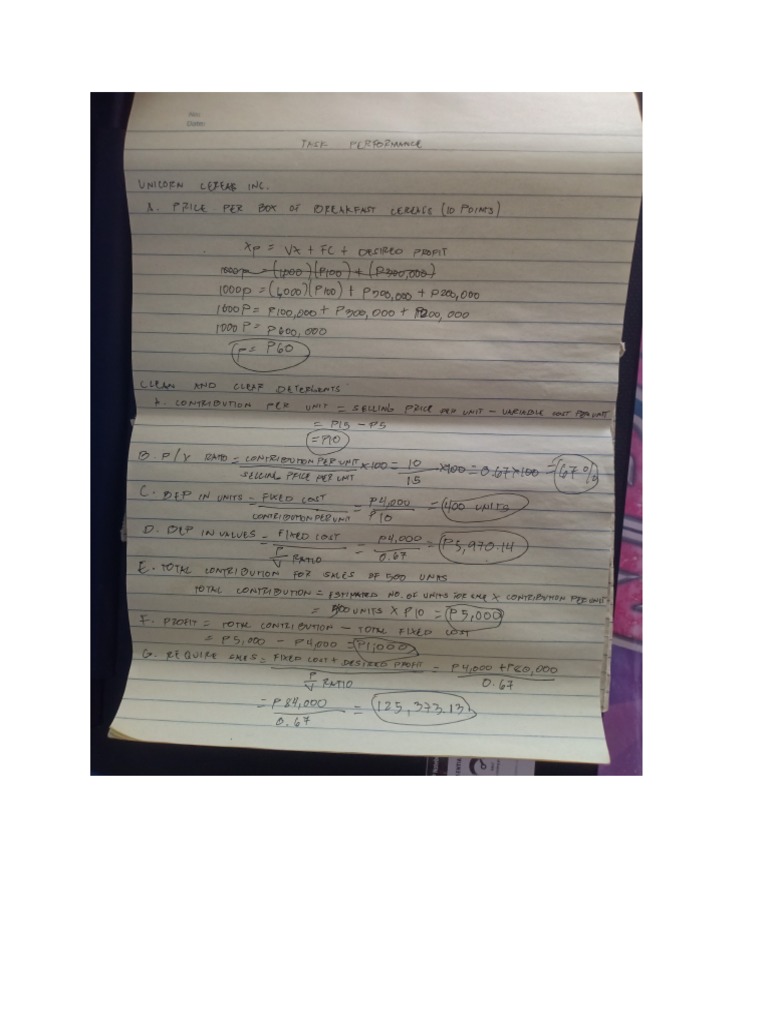 No:
Date:
TASK PERFORMANCE
UNICORN CEREAL INC.
A. PRICE PER BOX OF BREAKFAST CEREALS (10 POINTS)
Xp = VX + FC + DESIRED PROFIT
1000p = (1000)(P100) + (P300,000)
1000p = (6000)(P100) + P300,000 + P200,000
1000P = P100,000 + P300,000 + P200,000
1000P = P600,000
P = P60
CLEAN AND CLEAR DETERGENTS
A. CONTRIBUTION PER UNIT = SELLING PRICE PER UNIT - VARIABLE COST PER UNIT
= P15 - P5
= P10
B. P/V RATIO = CONTRIBUTION PER UNIT / SELLING PRICE PER UNIT X 100 = 10 / 15 X 100 = 0.67 X 100 = 67%
C. BEP IN UNITS = FIXED COST / CONTRIBUTION PER UNIT = P4,000 / P10 = 400 UNITS
D. BEP IN VALUES = FIXED COST / P/V RATIO = P4,000 / 0.67 = P5,970.14
E. TOTAL CONTRIBUTION FOR SALES OF 500 UNITS
TOTAL CONTRIBUTION = ESTIMATED NO. OF UNITS FOR SALE X CONTRIBUTION PER UNIT
= 500 UNITS X P10 = P5,000
F. PROFIT = TOTAL CONTRIBUTION - TOTAL FIXED COST
= P5,000 - P4,000 = P1,000
G. REQUIRE SALES = FIXED COST + DESIRED PROFIT / P/V RATIO = P4,000 + P80,000 / 0.67
= P84,000 / 0.67 = 125,373.13